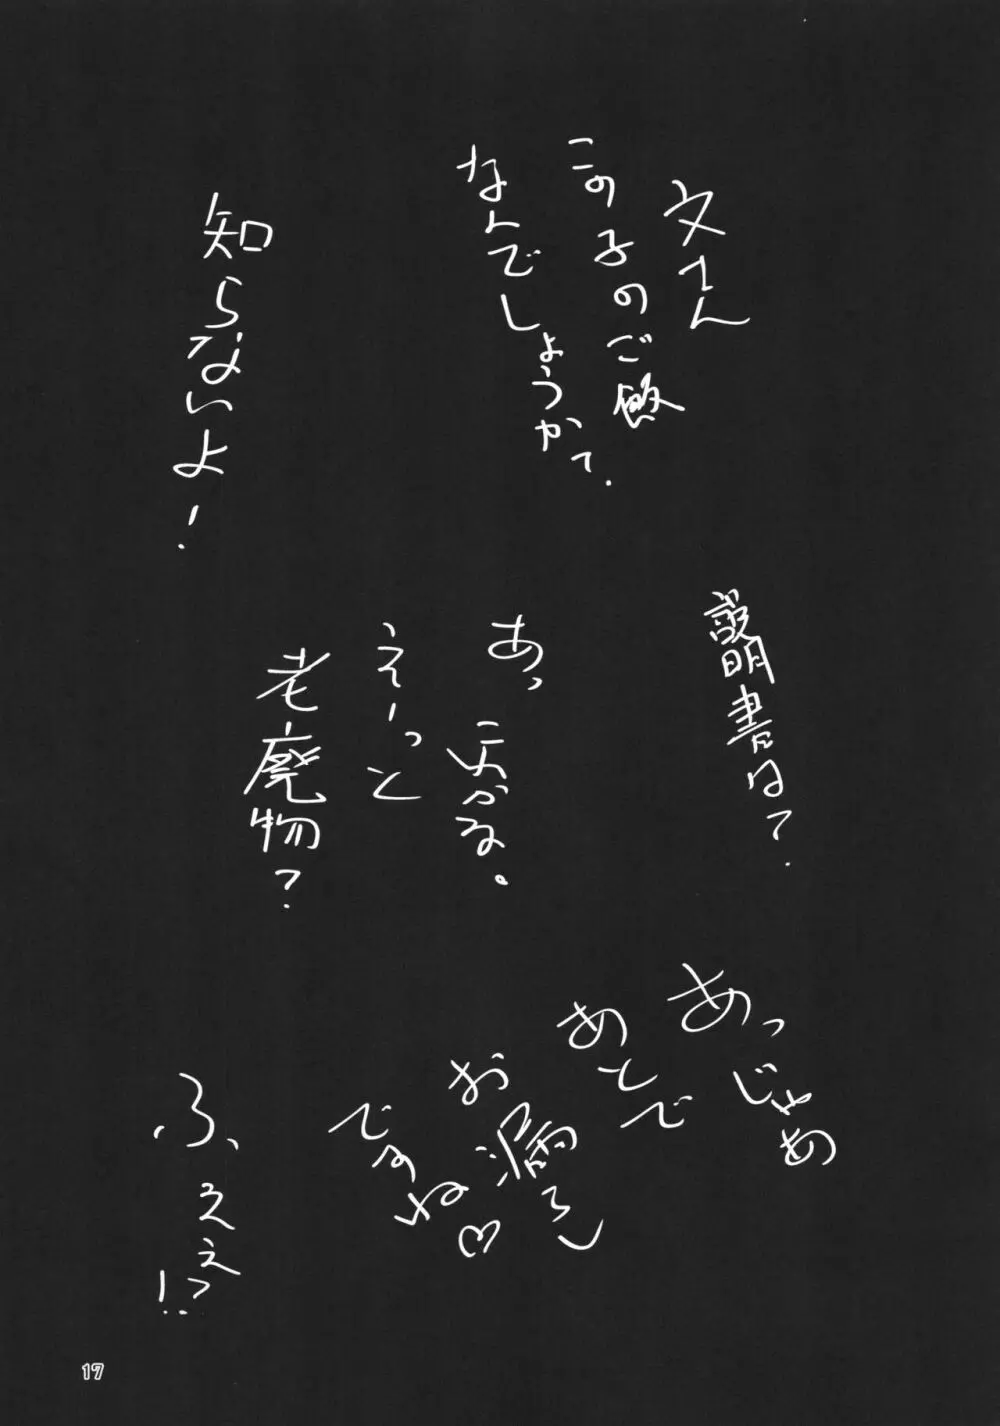 文さん
この子のご飯
なんでしょうか?
知らないよ!
説明書は?
あっ
えーっと
老廃物?
あっじゃあ
あとで
お漏らし
ですね♡
ふ、ええ
!?
17